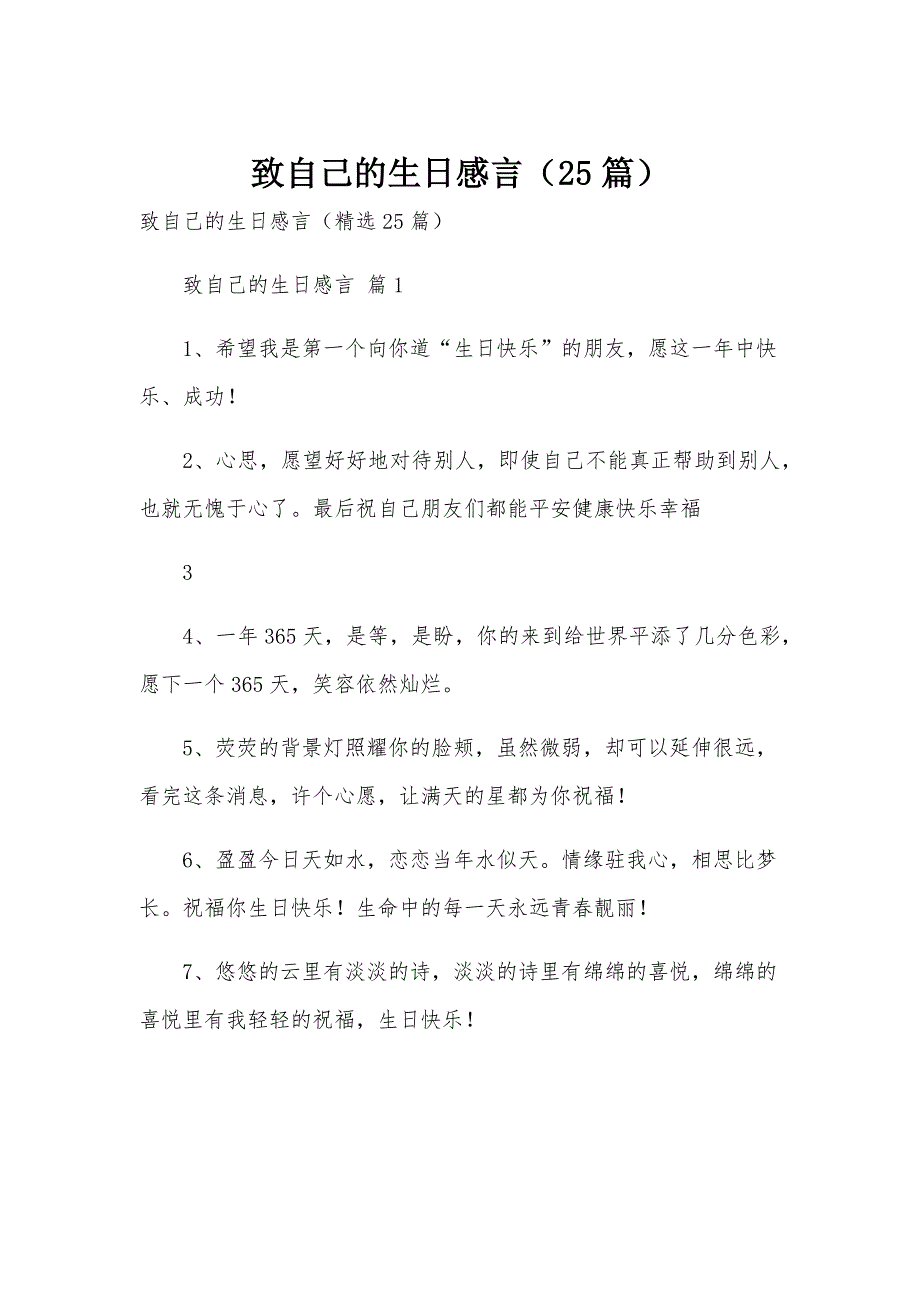 致自己的生日感言（25篇）
致自己的生日感言（精选25篇）
致自己的生日感言 篇1
1、希望我是第一个向你道“生日快乐”的朋友，愿这一年中快
乐、成功！
2、心思，愿望好好地对待别人，即使自己不能真正帮助到别人，
也就无愧于心了。最后祝自己朋友们都能平安健康快乐幸福
3
4、一年365天，是等，是盼，你的来到给世界平添了几分色彩，
愿下一个365天，笑容依然灿烂。
5、荧荧的背景灯照耀你的脸颊，虽然微弱，却可以延伸很远，
看完这条消息，许个心愿，让满天的星都为你祝福！
6、盈盈今日天如水，恋恋当年水似天。情缘驻我心，相思比梦
长。祝福你生日快乐！生命中的每一天永远青春靓丽！
7、悠悠的云里有淡淡的诗，淡淡的诗里有绵绵的喜悦，绵绵的
喜悦里有我轻轻的祝福，生日快乐！